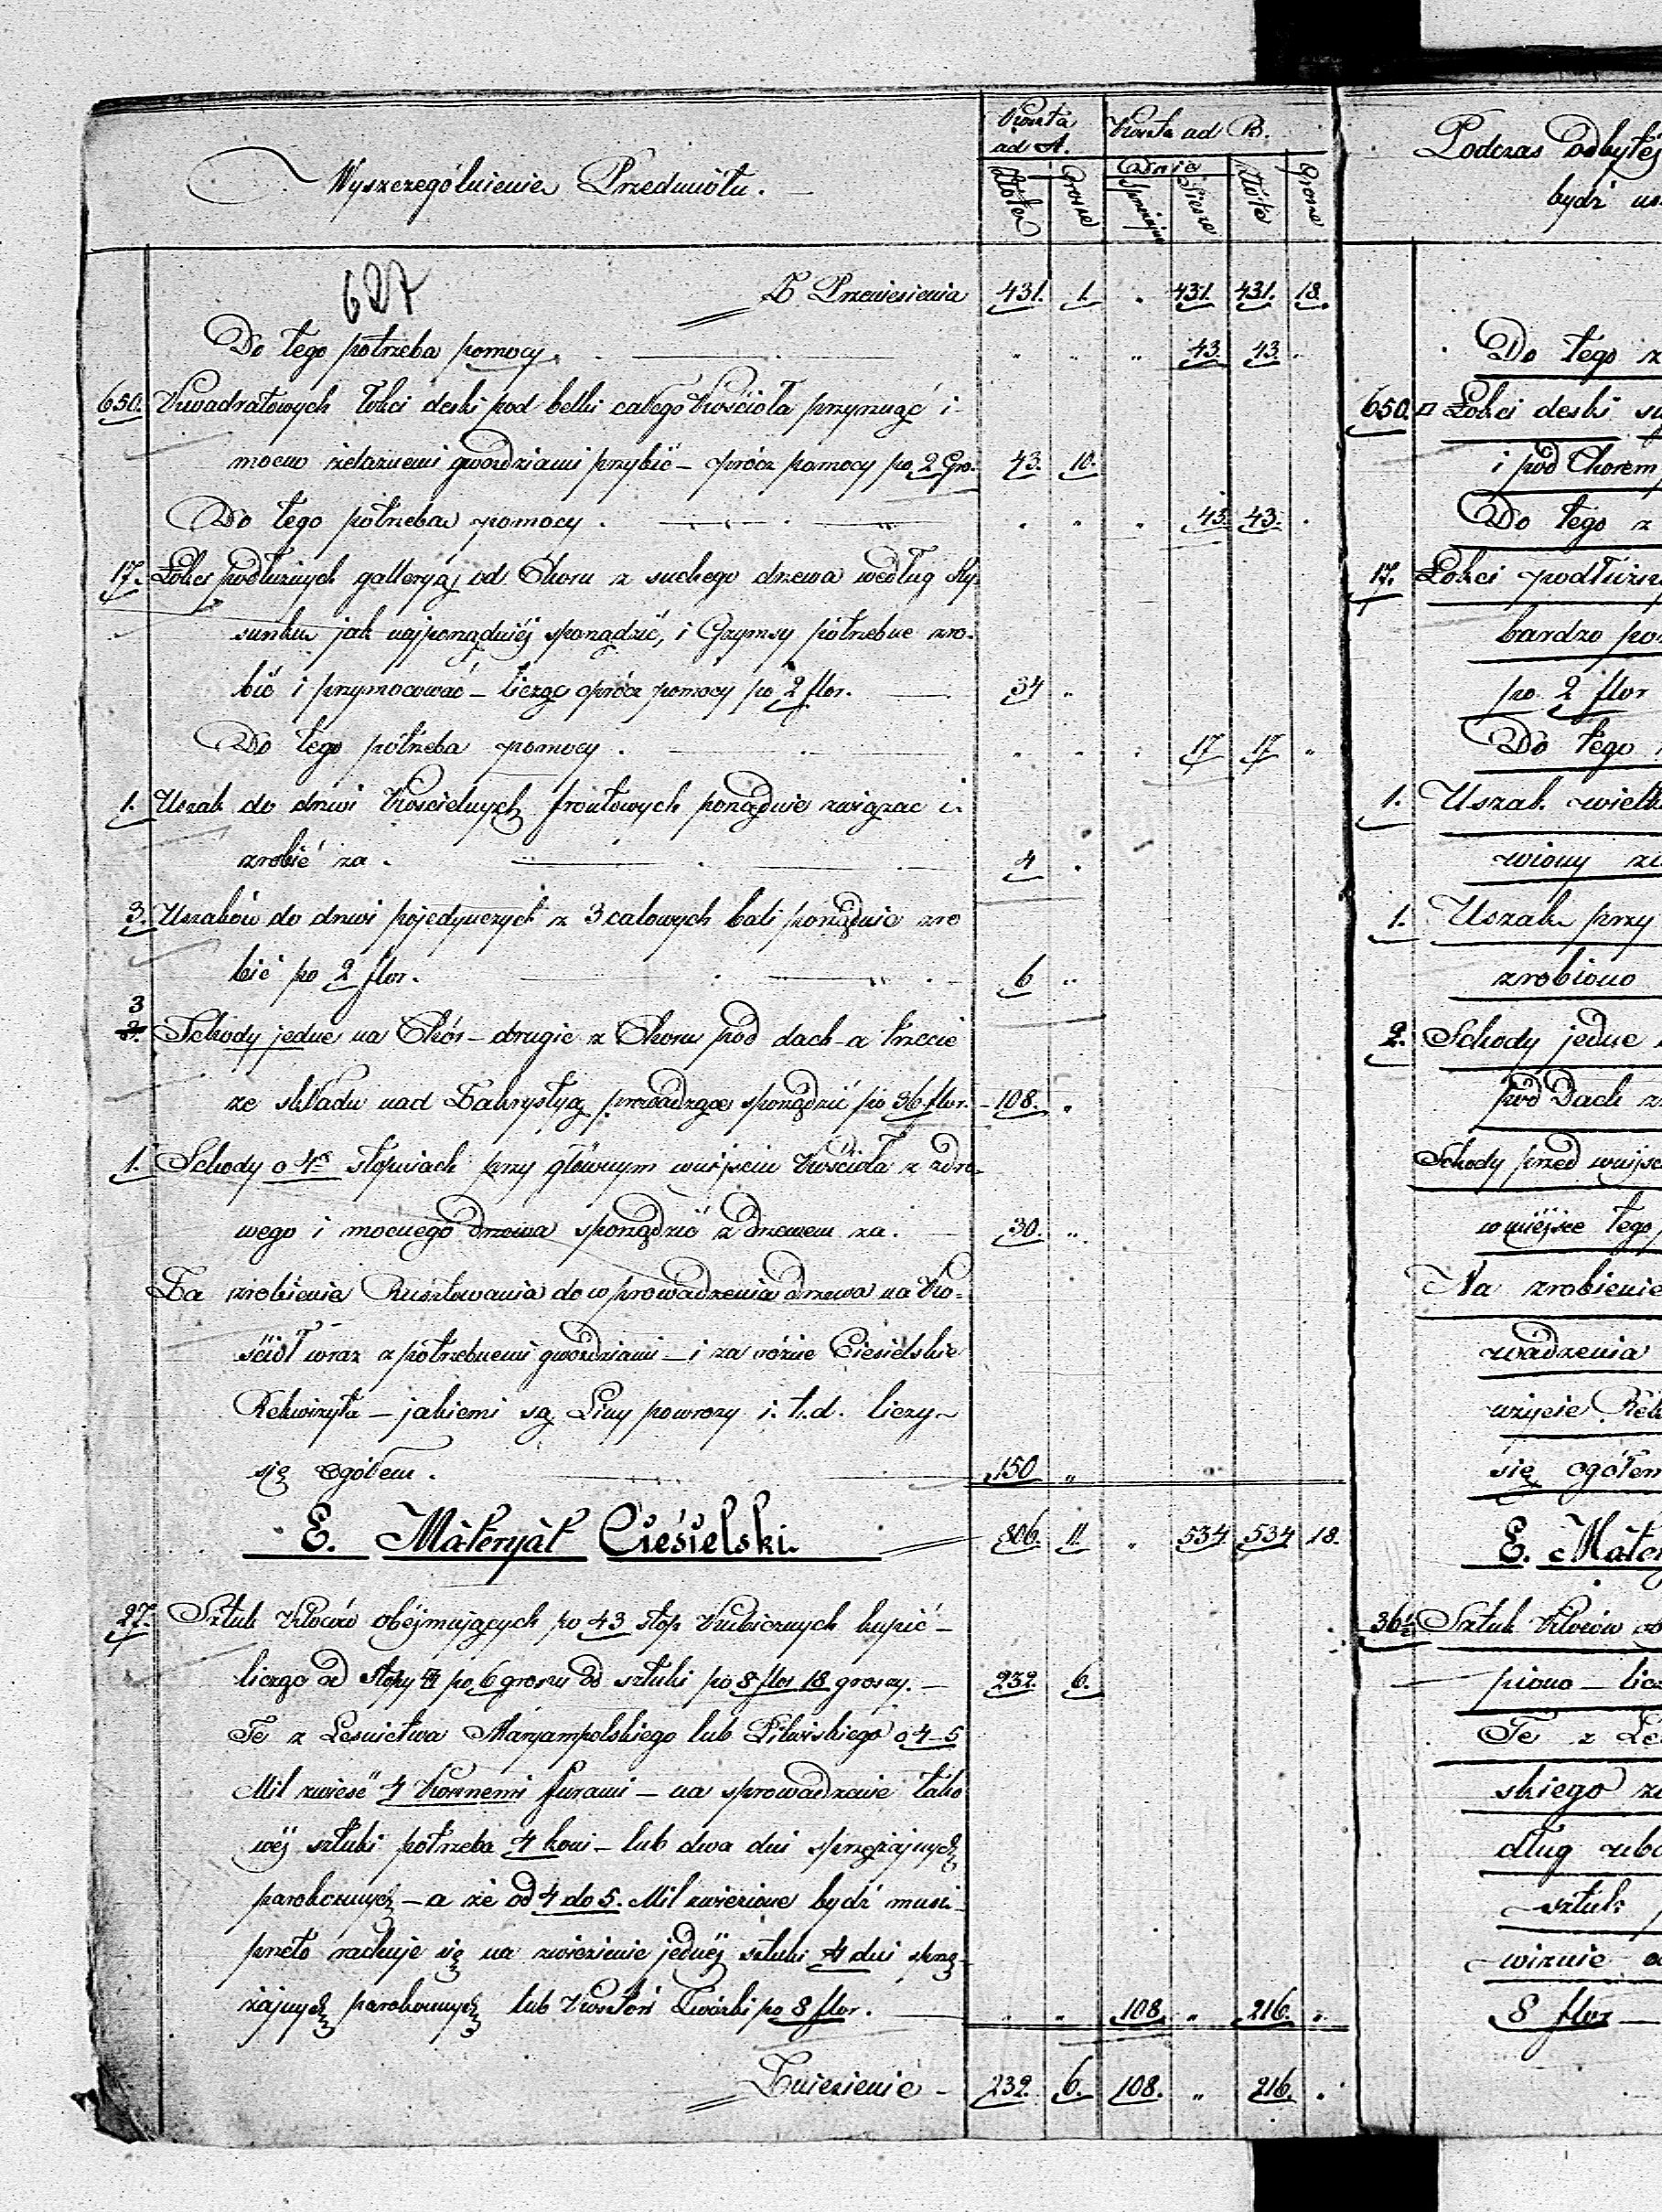 Koszta ad A. Koszta ad B.
Wyszczególnienie Przedmiotu.
Złote Grosze Dnie Sprzężajne Piesze Złote Grosze
627
Z Przeniesienia 431. 1. " 431. 431. 18.
Do tego potrzeba pomocy. " " " 43. 43. "
650. Kwadratowych łokci deski pod belki całego Kościoła przyrznąć i
mocno żelaznemi gwoździami przybić – oprócz pomocy po 2 Gro. 43. 10.
Do tego potrzeba pomocy. " " " 43. 43. "
17. Łokci podłużnych galleryą od Choru z suchego drzewa według Ry-
sunku jak najporządniéj sporządzić, i Gzymsy potrzebne zro-
bić i przymocować – licząc oprócz pomocy po 2 flor. 34 "
Do tego potrzeba pomocy. " " " 17 17 "
1. Uszak do drzwi Kościelnych frontowych porządnie związać i
zrobić za. 4 "
3. Uszaków do drzwi pojedynczych z 3 calowych bali porządnie zro
bić po 2 flor. 6 "
3
2. Schody jedne na Chór – drugie z Choru pod dach – a trzecie
ze składu nad Zakrystyą prowadzące sporządzić po 36 flor. 108. "
1. Schody o 4ch stopniach przy głównym wnijściu Kościoła z zdro-
wego i mocnego drzewa sporządzić z drzewem za. 30. "
Za zrobienie Rusztowania do wprowadzenia drzewa na Ko-
ściół wraz z potrzebnemi gwoździami – i za różne Ciesielskie
Rekwizyta – jakiemi są Liny powrozy i. t. d. liczy
się ogółem. 150 "
806. 11. " 534 534 18.
E. Materyał Ciesielski.
27. Sztuk Kloców obejmujących po 43 stóp Kubicznych kupić –
licząc od stopy po 6 groszy od sztuki po 8 flor 18 groszy. – 232. 6.
Te z Leśnictwa Maryampolskiego lub Pilwiskiego o 4–5
Mil zwieść 4 Konnemi furami – na sprowadzenie tako
wéj sztuki potrzeba 4 koni – lub dwa dni sprzężajnych
parokonnych – a że od 4 do 5. Mil zwiezione bydź musi
przeto rachuje się na zwiezienie jednéj sztuki 4 dni sprzę-
żajnych parokonnych lub Kosztów Zwózki po 8 flor. " " 108. " 216. "
Zniesienie – 232. 6. 108. " 216. "
Podczas odbytéj
bydź
Do tego
650. Łokci deski
i pod Chorem
Do tego z
17. Łokci podłużn
bardzo po
po 2 flor
Do tego
1. Uszak wielk
wiony
1. Uszak przy
zrobiono
2. Schody jedne
pod Dach
Schody przed wnijśc
w miejsce tego
Na zrobienie
wadzenia
użycie Rek
się ogółem
E. Mater
36. Sztuk Kloców
piono – licz
Te z Le
skiego
dług
sztuk
8 flor –